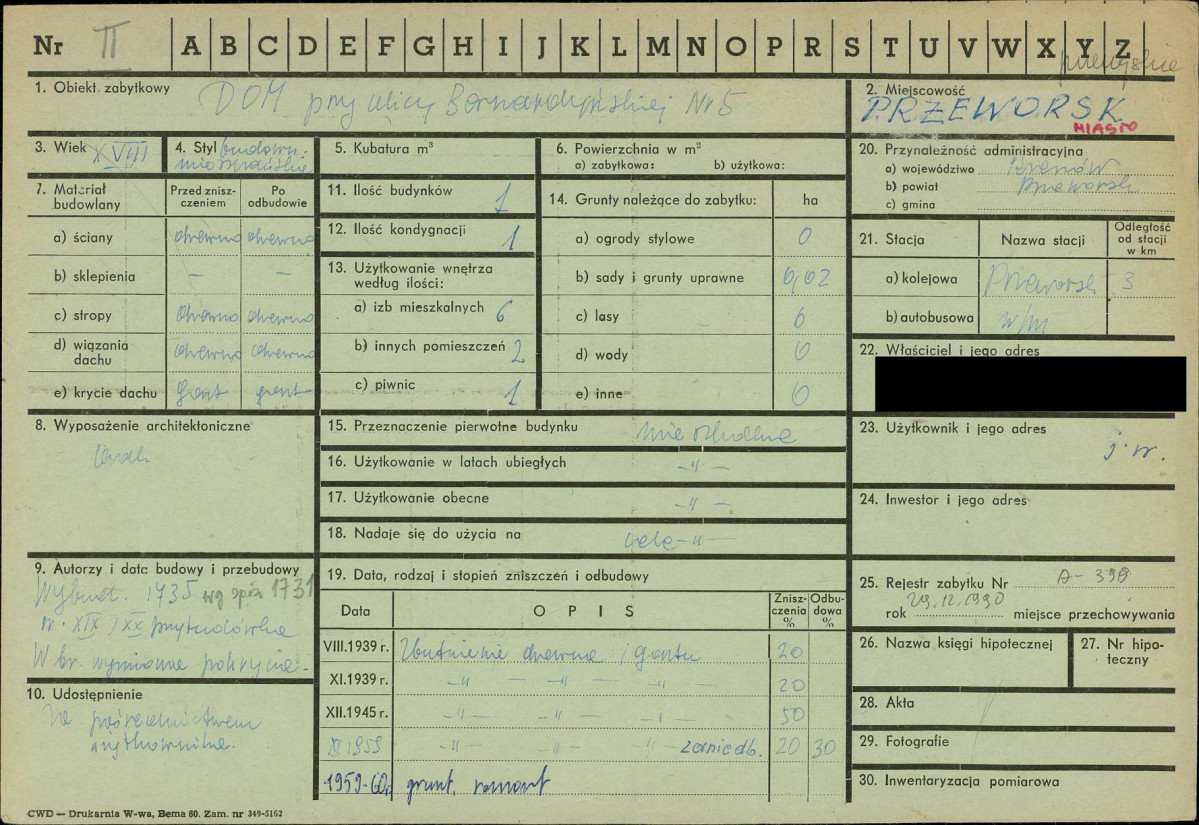 Nr II A B C D E F G H I J K L M N O P R S T U V W X Y Z
przemyskie
1. Obiekt zabytkowy DOM przy ulicy Bernardyńskiej Nr 5
2. Miejscowość
PRZEWORSK
MIASTO
3. Wiek XVIII
4. Styl budown.
mieszczańskie
5. Kubatura m³
6. Powierzchnia w m²
a) zabytkowa: b) użytkowa:
7. Materiał budowlany
Przed zniszczeniem
Po odbudowie
a) ściany drewno drewno
b) sklepienia — —
c) stropy drewno drewno
d) wiązania dachu drewno drewno
e) krycie dachu gont gont
8. Wyposażenie architektoniczne
9. Autorzy i data budowy i przebudowy
Wybud. 1735 wg spisu 1731
w. XIX/XX przybudówka
W br. wymiana pokrycia.
10. Udostępnienie
Za pośrednictwem
użytkownika.
11. Ilość budynków 1
12. Ilość kondygnacji 1
13. Użytkowanie wnętrza według ilości:
a) izb mieszkalnych 6
b) innych pomieszczeń 2
c) piwnic 1
14. Grunty należące do zabytku: ha
a) ogrody stylowe 0
b) sady i grunty uprawne 0,02
c) lasy 0
d) wody 0
e) inne 0
15. Przeznaczenie pierwotne budynku mieszkalne
16. Użytkowanie w latach ubiegłych —"—
17. Użytkowanie obecne —"—
18. Nadaje się do użycia na cele —"—
19. Data, rodzaj i stopień zniszczeń i odbudowy
Data OPIS Zniszczenia % Odbudowa %
VIII.1939 r. Zbutwienie drewna i gontu 20
XI.1939 r. —"— —"— —"— 20
XII.1945 r. —"— —"— —"— 50
XI 1959 —"— —"— —"— zaniedb. 20 30
1959-60r. grunt. remont
20. Przynależność administracyjna
a) województwo Rzeszów
b) powiat Przeworsk
c) gmina
21. Stacja Nazwa stacji Odległość od stacji w km
a) kolejowa Przeworsk 3
b) autobusowa w/m
22. Właściciel i jego adres
23. Użytkownik i jego adres
j. w.
24. Inwestor i jego adres
25. Rejestr zabytku Nr A-398
rok 29.12.1990 miejsce przechowywania
26. Nazwa księgi hipotecznej
27. Nr hipoteczny
28. Akta
29. Fotografie
30. Inwentaryzacja pomiarowa
CWD — Drukarnia W-wa, Bema 60. Zam. nr 349-5162